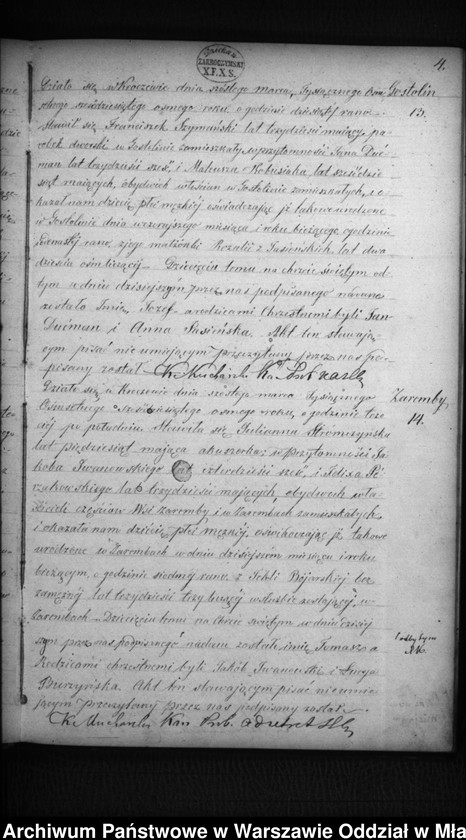 4.
Działo się w Kroczewie dnia szóstego marca, Tysiącznego Ośm
Gostolin
13.
setnego sześćdziesiątego osmego roku, o godzinie dziesiątej rano.
Stawił się Franciszek Szymański lat trzydzieści mający, pa-
robek dworski w Gostolinie zamieszkały, w przytomności Jana Duć-
man lat trzydzieści sześć, i Mateusza Kobusiaka, lat sześćdzie-
siąt mających, obydwóch włościan w Gostolinie zamieszkałych, i o-
kazał nam dziecię płci męzkiej oświadczając iż takowe urodzone
w Gostolinie dnia wczorajszego miesiąca i roku bieżącego o godzinie
rano, z jego małżonki Rozalii z Jasieńskich, lat dwa-
dzieścia ośm liczącej. Dziecięciu temu na chrzcie świętym od-
bytym w dniu dzisiejszym przez nas podpisanego nadane
zostało Imię Józef a rodzicami Chrzestnemi byli Jan
Dućman i Anna Jasieńska. Akt ten stawają-
cym pisać nieumiejącym przeczytany przez nas pod-
pisany został.
Działo się w Kroczewie dnia szóstego marca tysiącznego
Zaremby
14.
Ośmsetnego sześćdziesiątego osmego roku, o godzinie trze-
ciej po południu. Stawiła się Julianna Stromczynska
lat pięćdziesiąt mająca akuszerka; w przytomności Ja-
koba Iwanowskiego lat czterdzieści sześć, i Felixa
lat trzydzieści mających, obydwóch wła-
ścicieli częściow Wsi Zaremby i w Zarembach zamieszkałych,
i okazała nam dziecię płci męzkiej, oświadczając iż takowe
urodzone w Zarembach w dniu dzisiejszem miesiącu i roku
bieżącym, o godzinie siódmej rano, z Tekli Bijarskiej bez-
zamężnej lat trzydzieści trzy liczącej w służbie zostającej w
Zarembach. Dziecięciu temu na chrzcie świętym w dniu dzisiej-
szym przez nas podpisanego nadane zostało imię Tomasz a
Rodzicami chrzestnemi byli Jakób Iwanowski i Łucya
Burzyńska. Akt ten stawającym pisać nieumie-
jącym przeczytany przez nas podpisany został.
Archiwum Państwowe w Warszawie Oddział w Mła